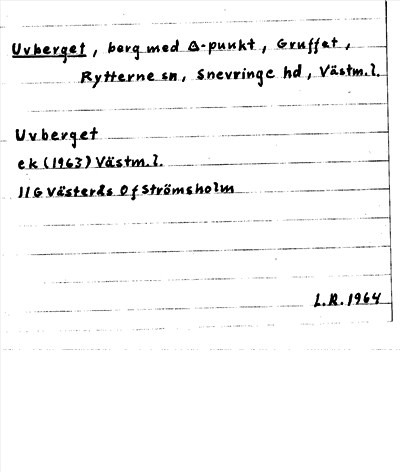 Uvberget, berg med △-punkt, Gruffet,
Rytterne sn, Snevringe hd, Västm.l.
Uvberget
ek (1963) Västm.l.
11G Västerås 0f Strömsholm
L.R. 1964